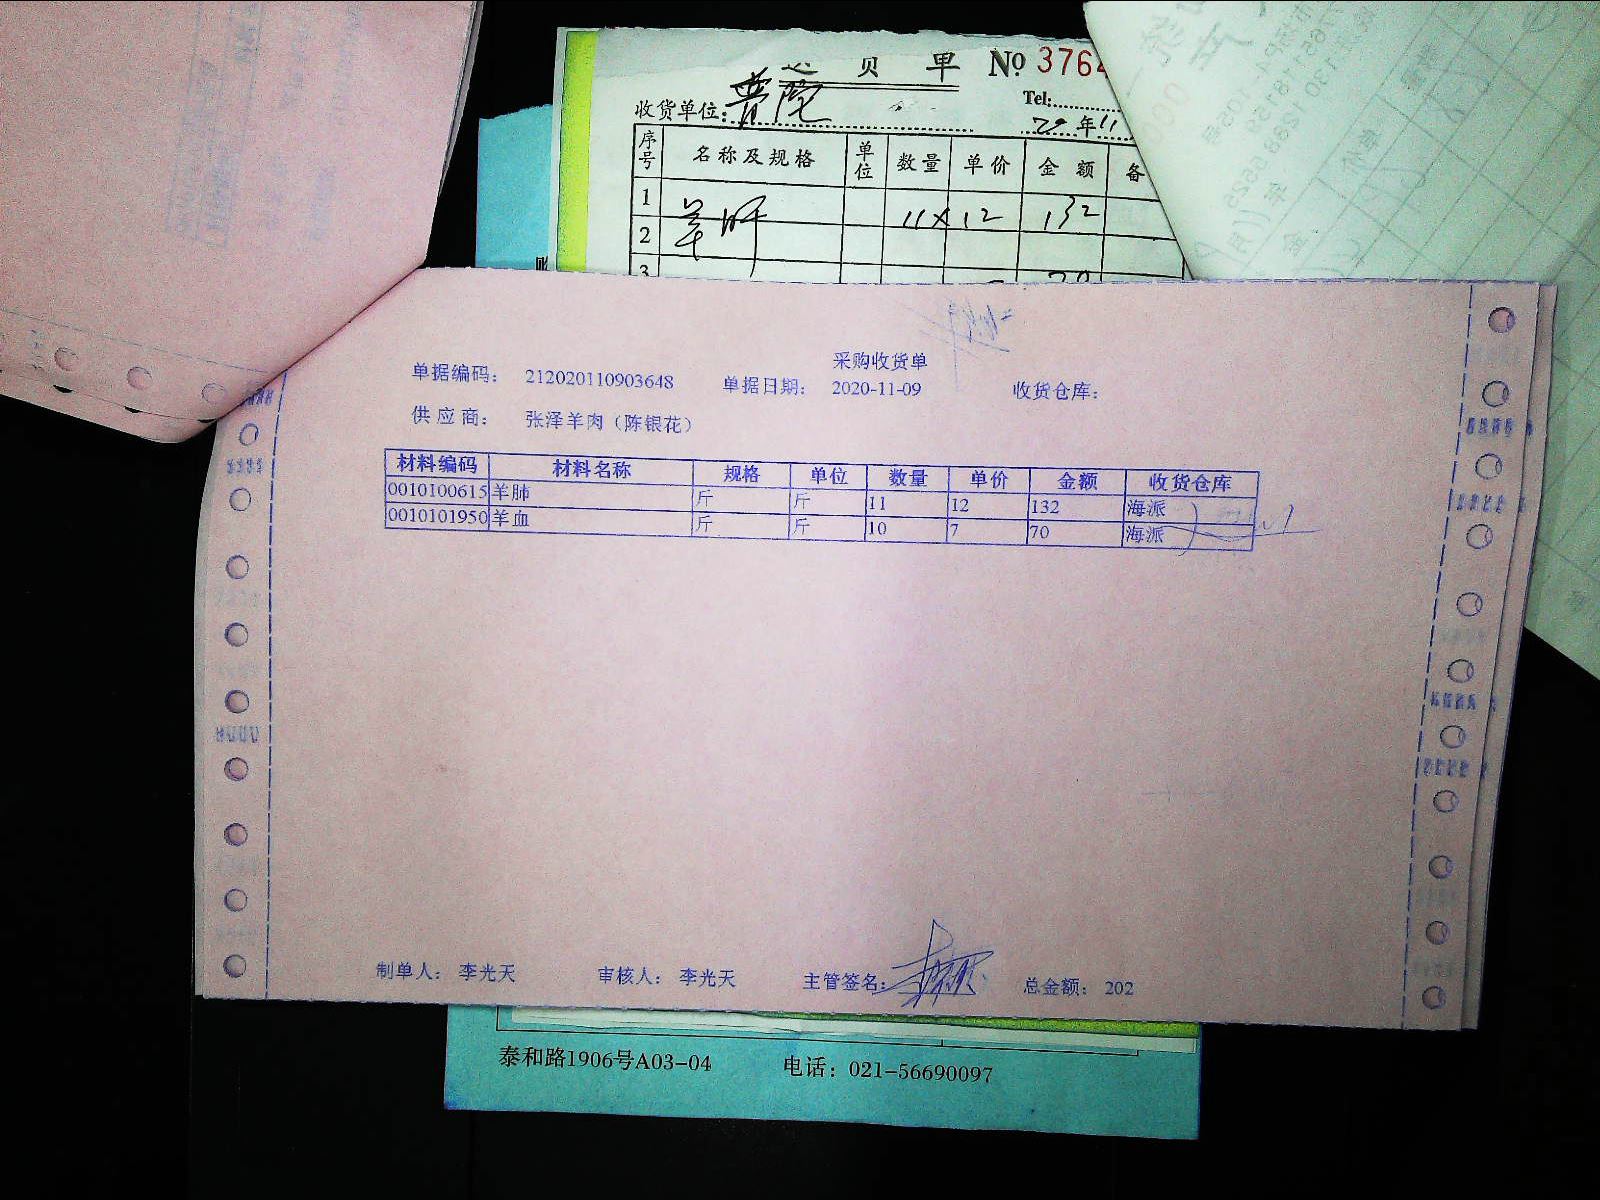 送货单 № 3764
收货单位:
Tel:
20年11
序号 名称及规格 单位 数量 单价 金额 备
1 羊肝 11×12 132
2
3 70
采购收货单
单据编码: 212020110903648 单据日期: 2020-11-09 收货仓库:
供应商: 张泽羊肉（陈银花）
材料编码 材料名称 规格 单位 数量 单价 金额 收货仓库
0010100615 羊肺 斤 斤 11 12 132 海派
0010101950 羊血 斤 斤 10 7 70 海派
制单人: 李光天 审核人: 李光天 主管签名: 总金额: 202
泰和路1906号A03-04 电话: 021-56690097